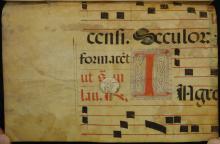 censi. Seculor
formaret
ut
lau.
I
Ngre